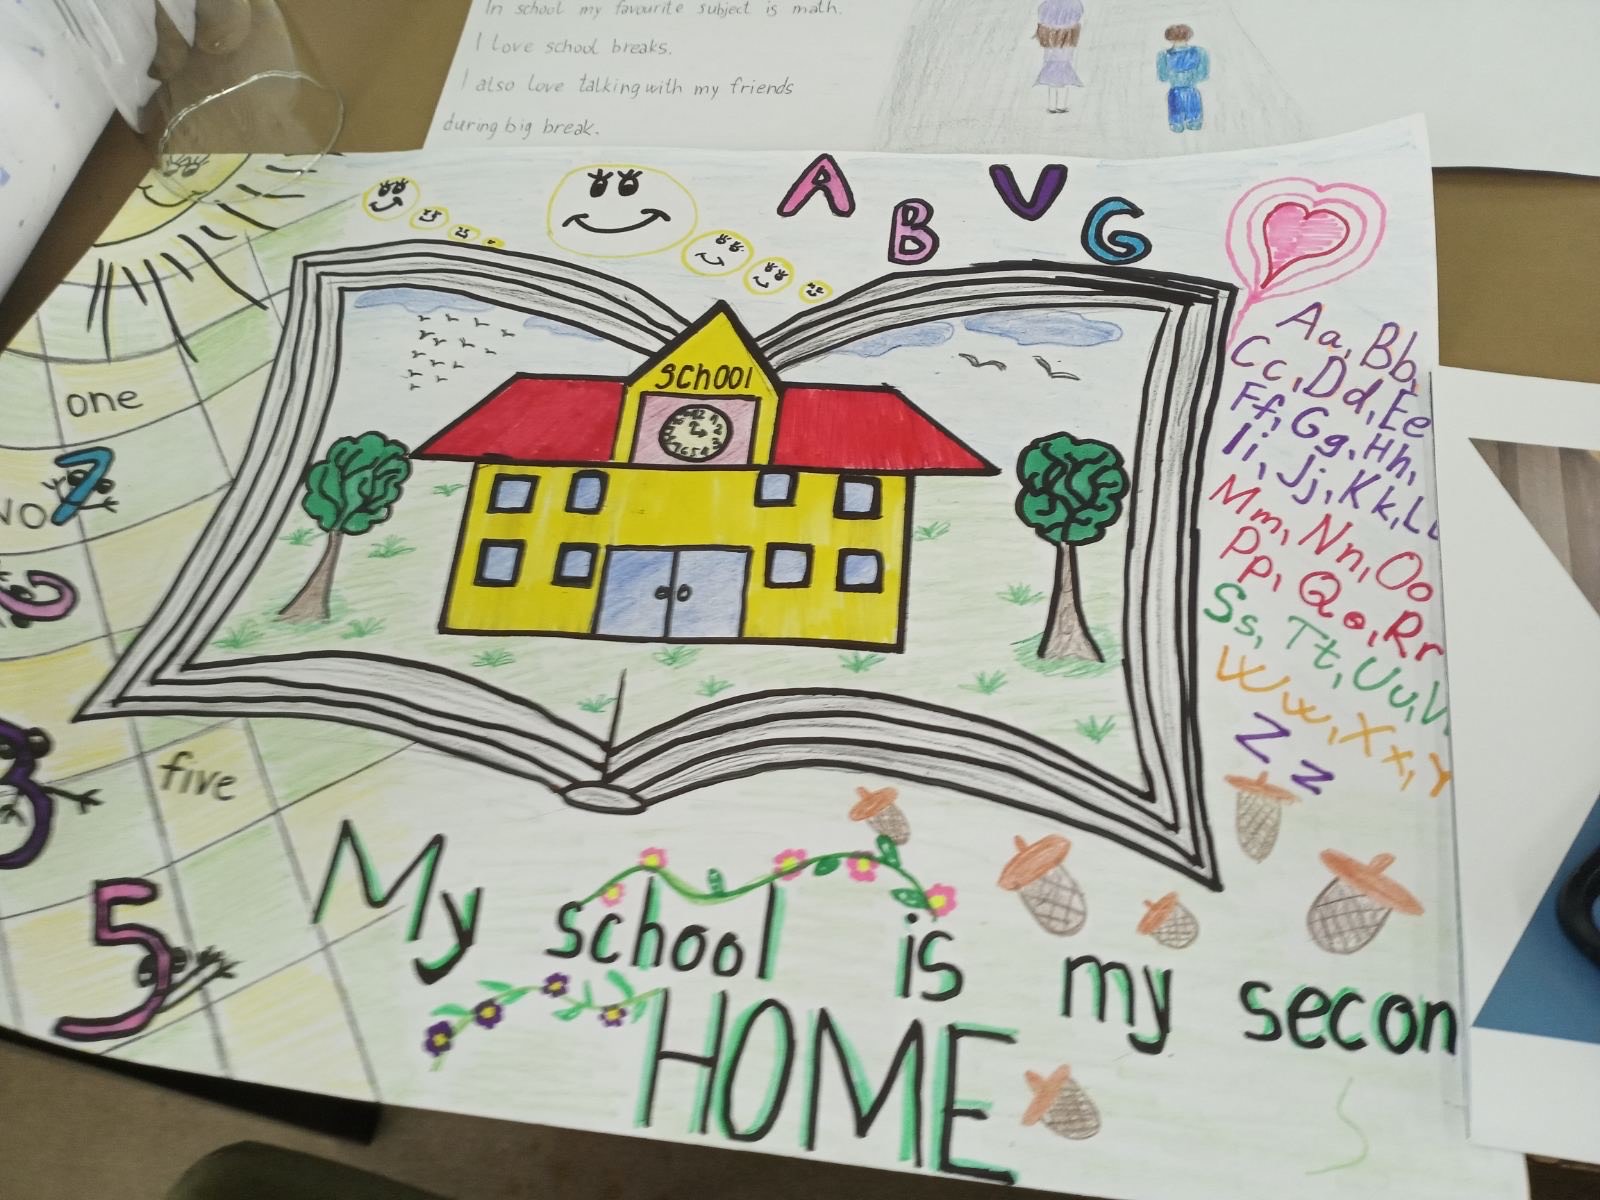 In school my favourite subject is math.
I love school breaks.
I also love talking with my friends
during big break.
A B V G
school
one
7
five
3
5
Aa, Bb,
Cc, Dd, Ee
Ff, Gg, Hh,
Ii, Jj, Kk, L
Mm, Nn, Oo
Pp, Qq, Rr
Ss, Tt, Uu, V
Ww, Xx, Y
Zz
My school is my secon
HOME